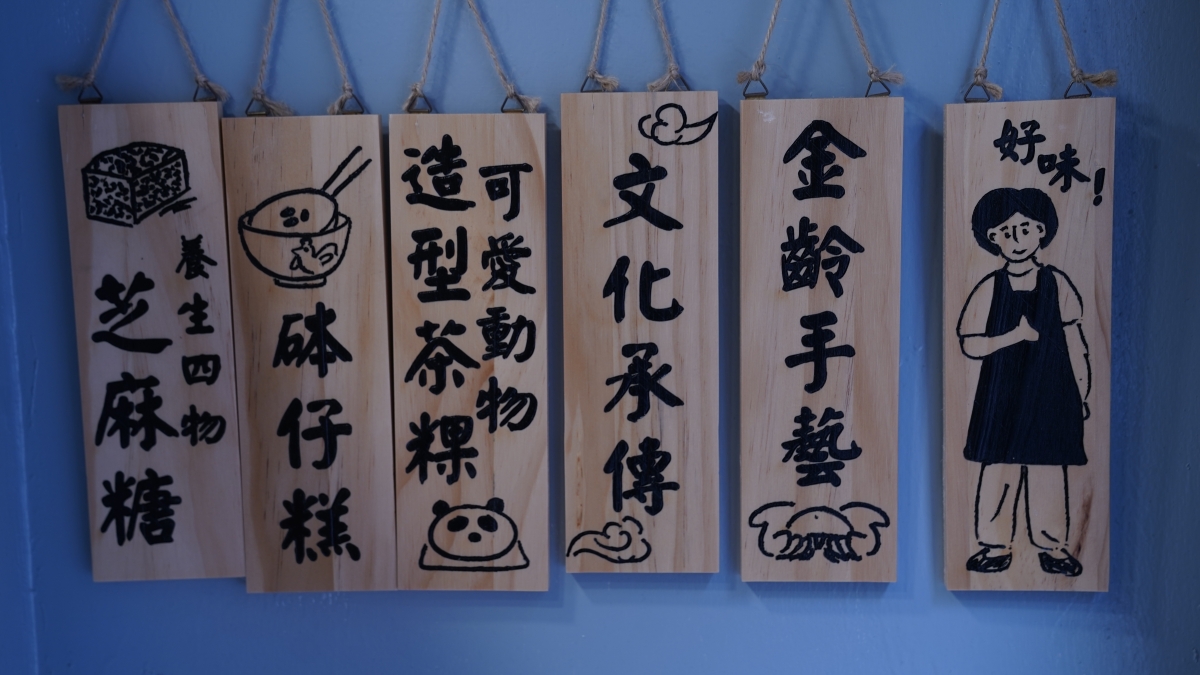 好味!
金齡手藝
文化承傳
可愛動物
造型茶粿
砵仔糕
養生四物
芝麻糖